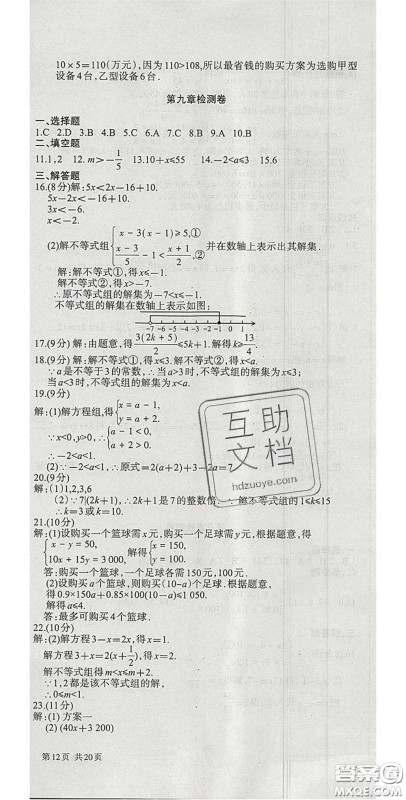 10×5=110(万元),因为110>108,所以最省钱的购买方案为选购甲型
设备4台,乙型设备6台.
第九章检测卷
一、选择题
1.C 2.D 3.B 4.B 5.C 6.A 7.C 8.C 9.A 10.B
二、填空题
11.1,2 12.m>-1/5 13.10+x≤55 14.-2<a≤3 15.6
三、解答题
16.(8分)解:5x<2x-16+10.
5x-2x<-16+10.
3x<-6.
x<-2.
(2)解不等式组{x-3(x-1)≥5,① (x-3)/5-1<(x+1)/2,② 并在数轴上表示出其解集.
解:解不等式①,得x≤-1.
解不等式②,得x>-7.
∴原不等式组的解集为-7<x≤-1.
不等式组的解集在数轴上表示如图:
-7 -6 -5 -4 -3 -2 -1 0 1
17.(9分)解:由题意,得3(2k+5)/2≤5k+1.解得k≥13/4.
18.(9分)解:解不等式①,得x≤3.解不等式②,得x<a.
∵a是不等于3的常数,∴当a>3时,不等式组的解集为x≤3;
当a<3时,不等式组的解集为x<a.
19.(9分)
解:(1)解方程组,得{x=a-1, y=a+2.
∵x<0,y>0,∴{a-1<0, a+2>0.
∴-2<a<1.
(2)∵-2<a<1,∴原式=2(a+2)-2a=7
20.(9分)
解:(1)1,2,3,6
(2)∵7|(2k+1),∴2k+1是7的整数倍.
解不等式组的1≤k≤15
∴k=3或k=10.
21.(10分)
解:(1)设购买一个篮球需x元,购买一个足球需y元,根据题意,得
{x-y=50, 10x+15y=3 000, 解得{x=150, y=100.
答:购买一个篮球,一个足球各需150元,100元.
(2)设购买a个篮球,则购买(10-a)个足球.根据题意,
得0.9×150a+0.85×100(10-a)≤1050.
解得a≤4.
答:最多可购买4个篮球.
22.(10分)
解:(2)解方程3-x=2x,得x=1.
解方程3+x=2(x+1/2),得x=2.
解不等式组得m<x≤m+2.
∵1,2都是该不等式组的解,
∴0≤m<1.
23.(11分)
解:(1)方案一
(2)(40x+3 200)
第12页 共20页
互助
文档
hdzuoye.com
答案圈
MXQE.COM